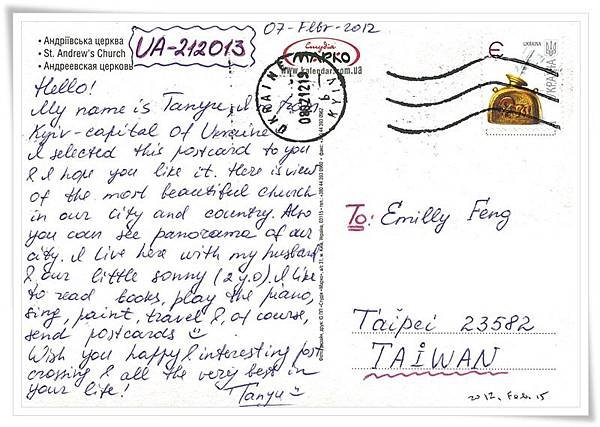 07-Febr-2012
• Андріївська церква
• St. Andrew's Church
• Андреевская церковь
UA-212013
Студія
МАРКО
www.kalendar.com.ua
UKRAINE
KYIV
080212
Є
УКРАЇНА
UKRAINE
Hello!
My name is Tanyu, I from
Kyiv-capital of Ukraine
I selected this postcard to you
& I hope you like it. Here is view
of the most beautiful church
in our city and country. Also
you can see panorama of our
city. I live here with my husband
& our little sonny (2 y.o). I like
to read books, play the piano,
sing, paint, travel &, of course,
send postcards
Wish you happy & interesting post
crossing & all the very best in
your life!
Tanyu
To: Emilly Feng
Taipei 23582
TAIWAN
2012. Feb. 15